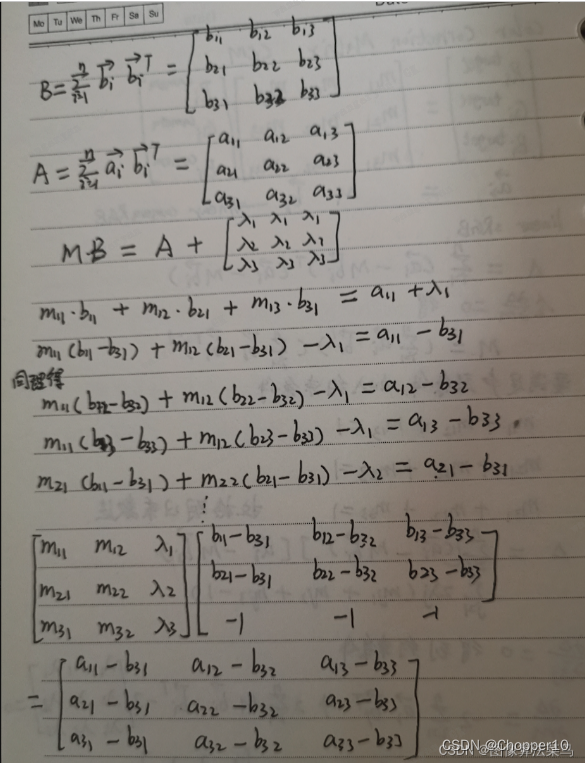 Mo Tu We Th Fr Sa Su
B = \sum_{i=1}^{n} \vec{b_i} \vec{b_i}^T = [b11 b12 b13
b21 b22 b23
b31 b32 b33]
A = \sum_{i=1}^{n} \vec{a_i} \vec{b_i}^T = [a11 a12 a13
a21 a22 a23
a31 a32 a33]
MB = A + [λ1 λ1 λ1
λ2 λ2 λ2
λ3 λ3 λ3]
m11·b11 + m12·b21 + m13·b31 = a11 + λ1
m11(b11-b31) + m12(b21-b31) - λ1 = a11 - b31
同理得
m11(b12-b32) + m12(b22-b32) - λ1 = a12 - b32
m11(b13-b33) + m12(b23-b33) - λ1 = a13 - b33
m21(b11-b31) + m22(b21-b31) - λ2 = a21 - b31
⋮
[m11 m12 λ1] [b11-b31 b12-b32 b13-b33]
[m21 m22 λ2] [b21-b31 b22-b32 b23-b33]
[m31 m32 λ3] [-1 -1 -1]
= [a11-b31 a12-b32 a13-b33
a21-b31 a22-b32 a23-b33
a31-b31 a32-b32 a33-b33]
CSDN @Chopper10